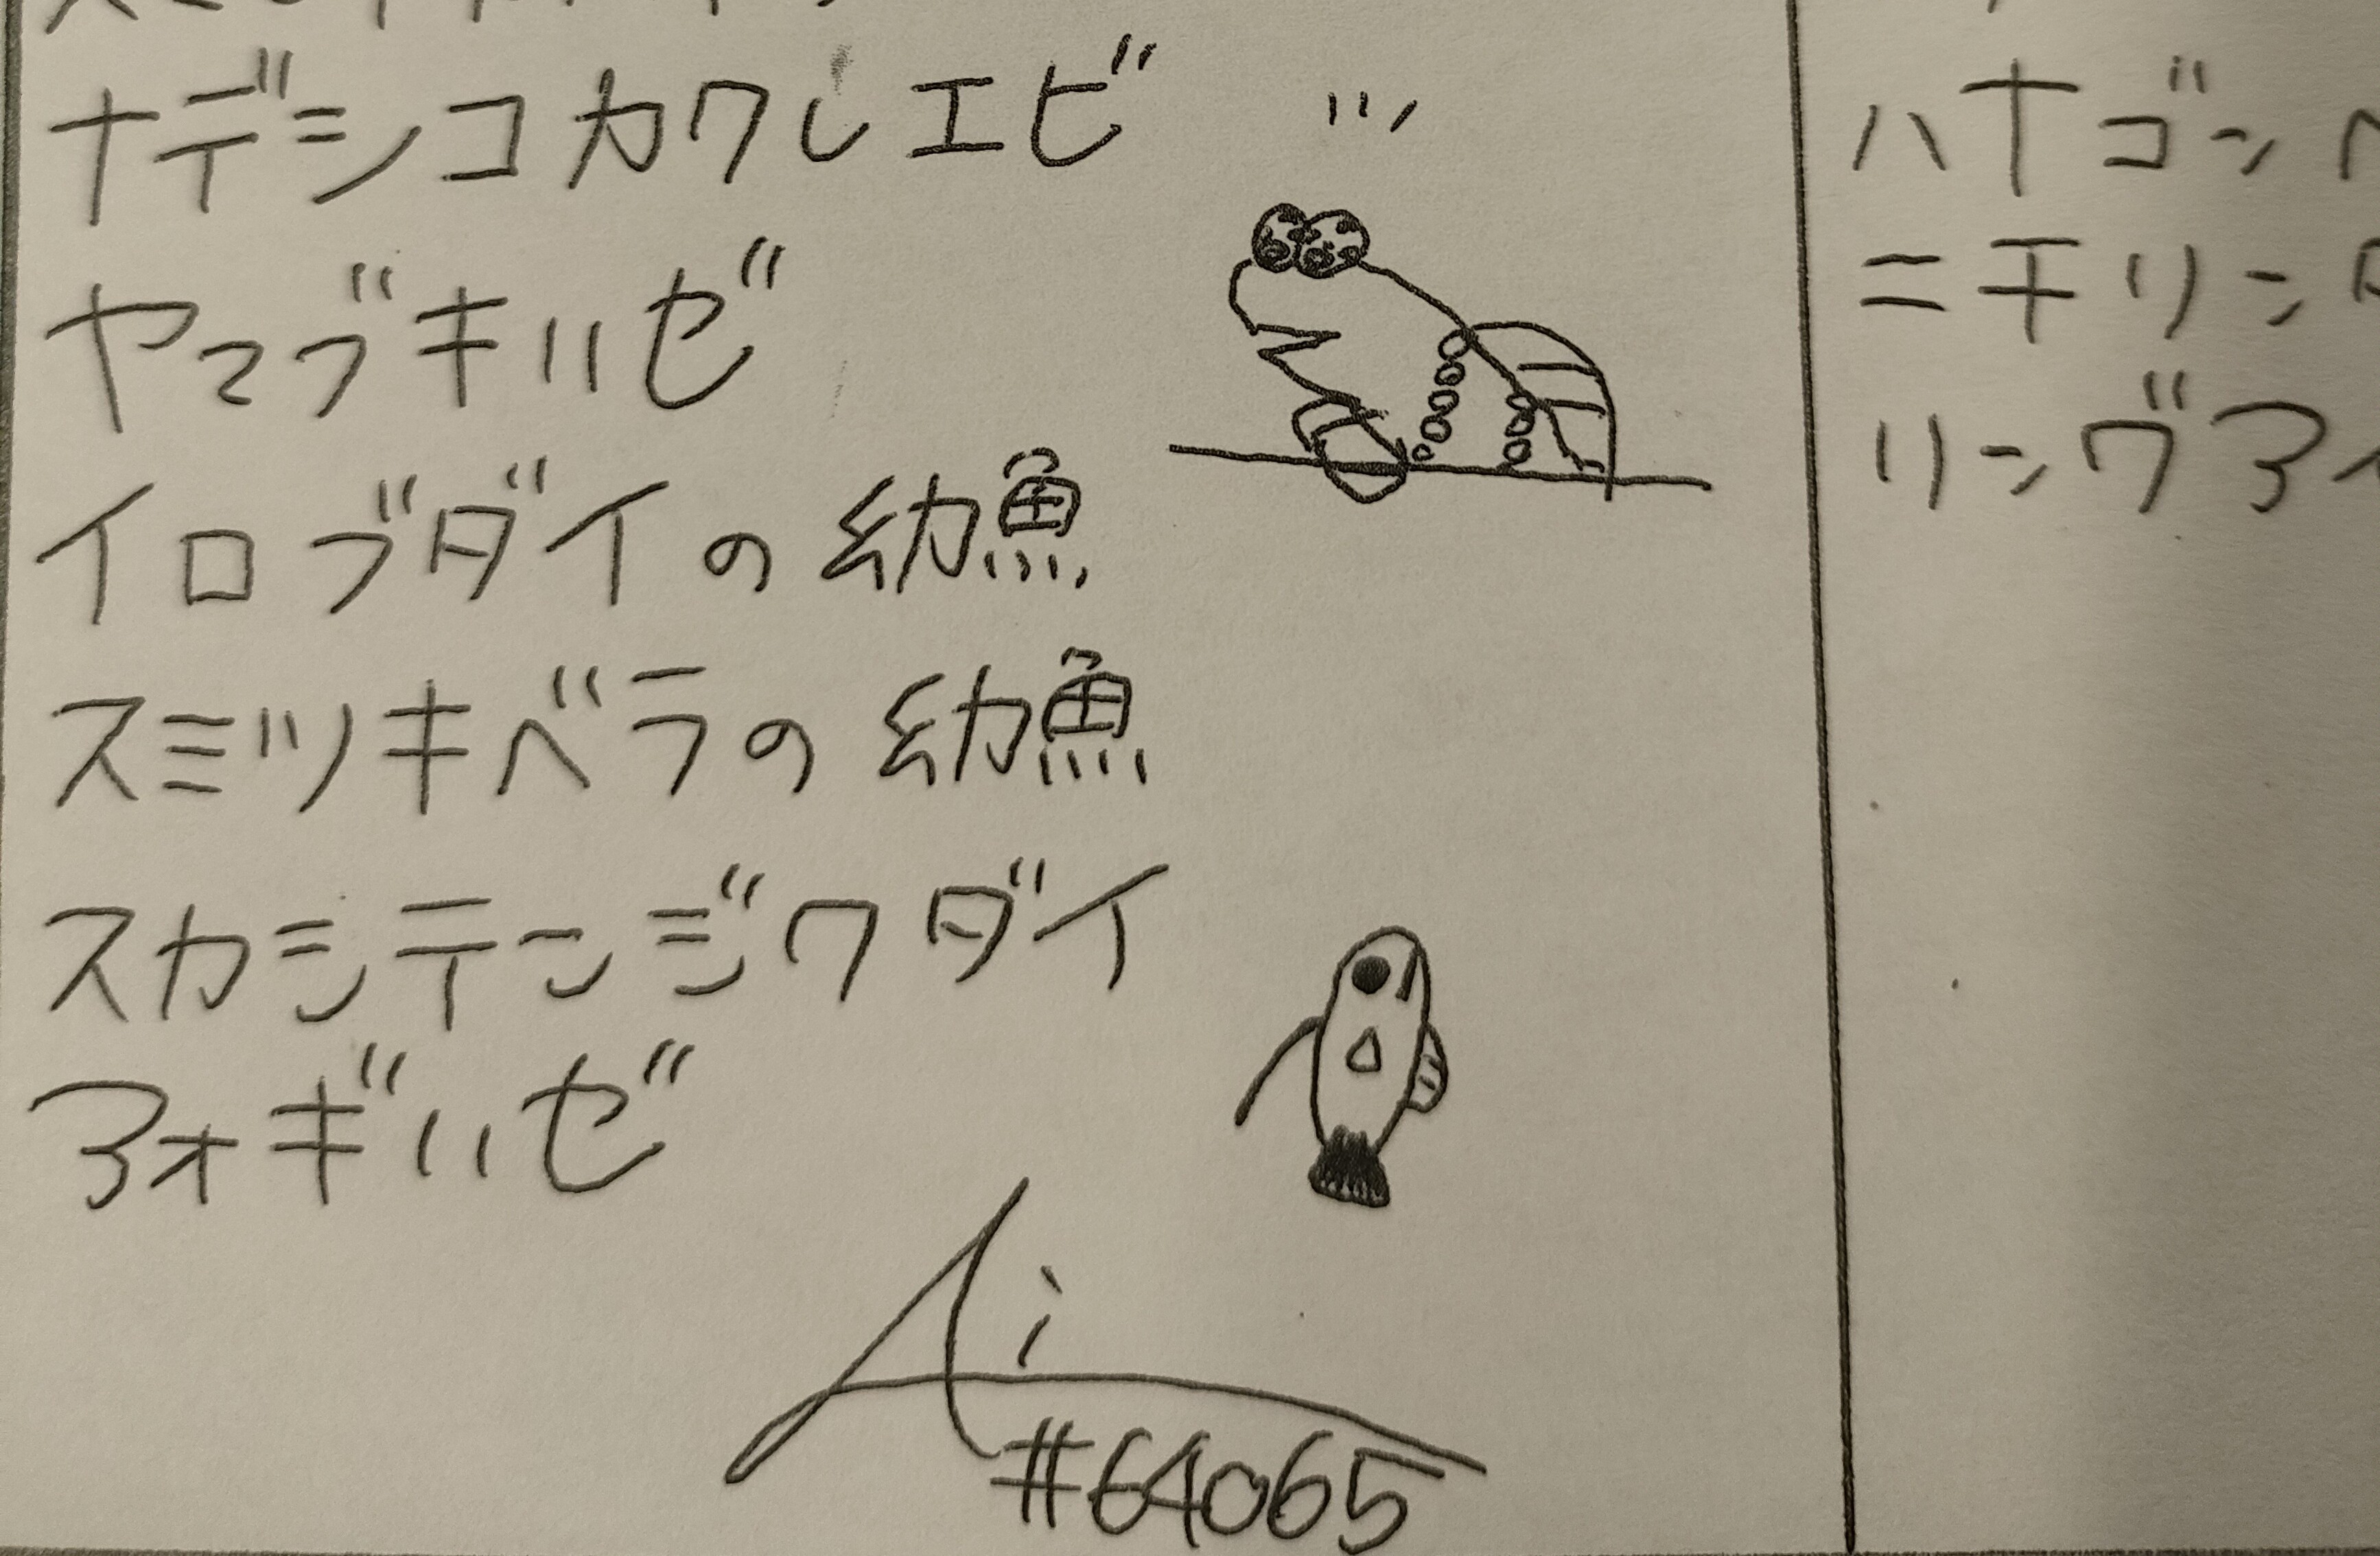 ナデシコカクレエビ
ヤマブキハゼ
イロブダイの幼魚
スミツキベラの幼魚
スカシテンジクダイ
アオギハゼ
Ai
#64065
ハナゴン
ニチリン
リングアイ